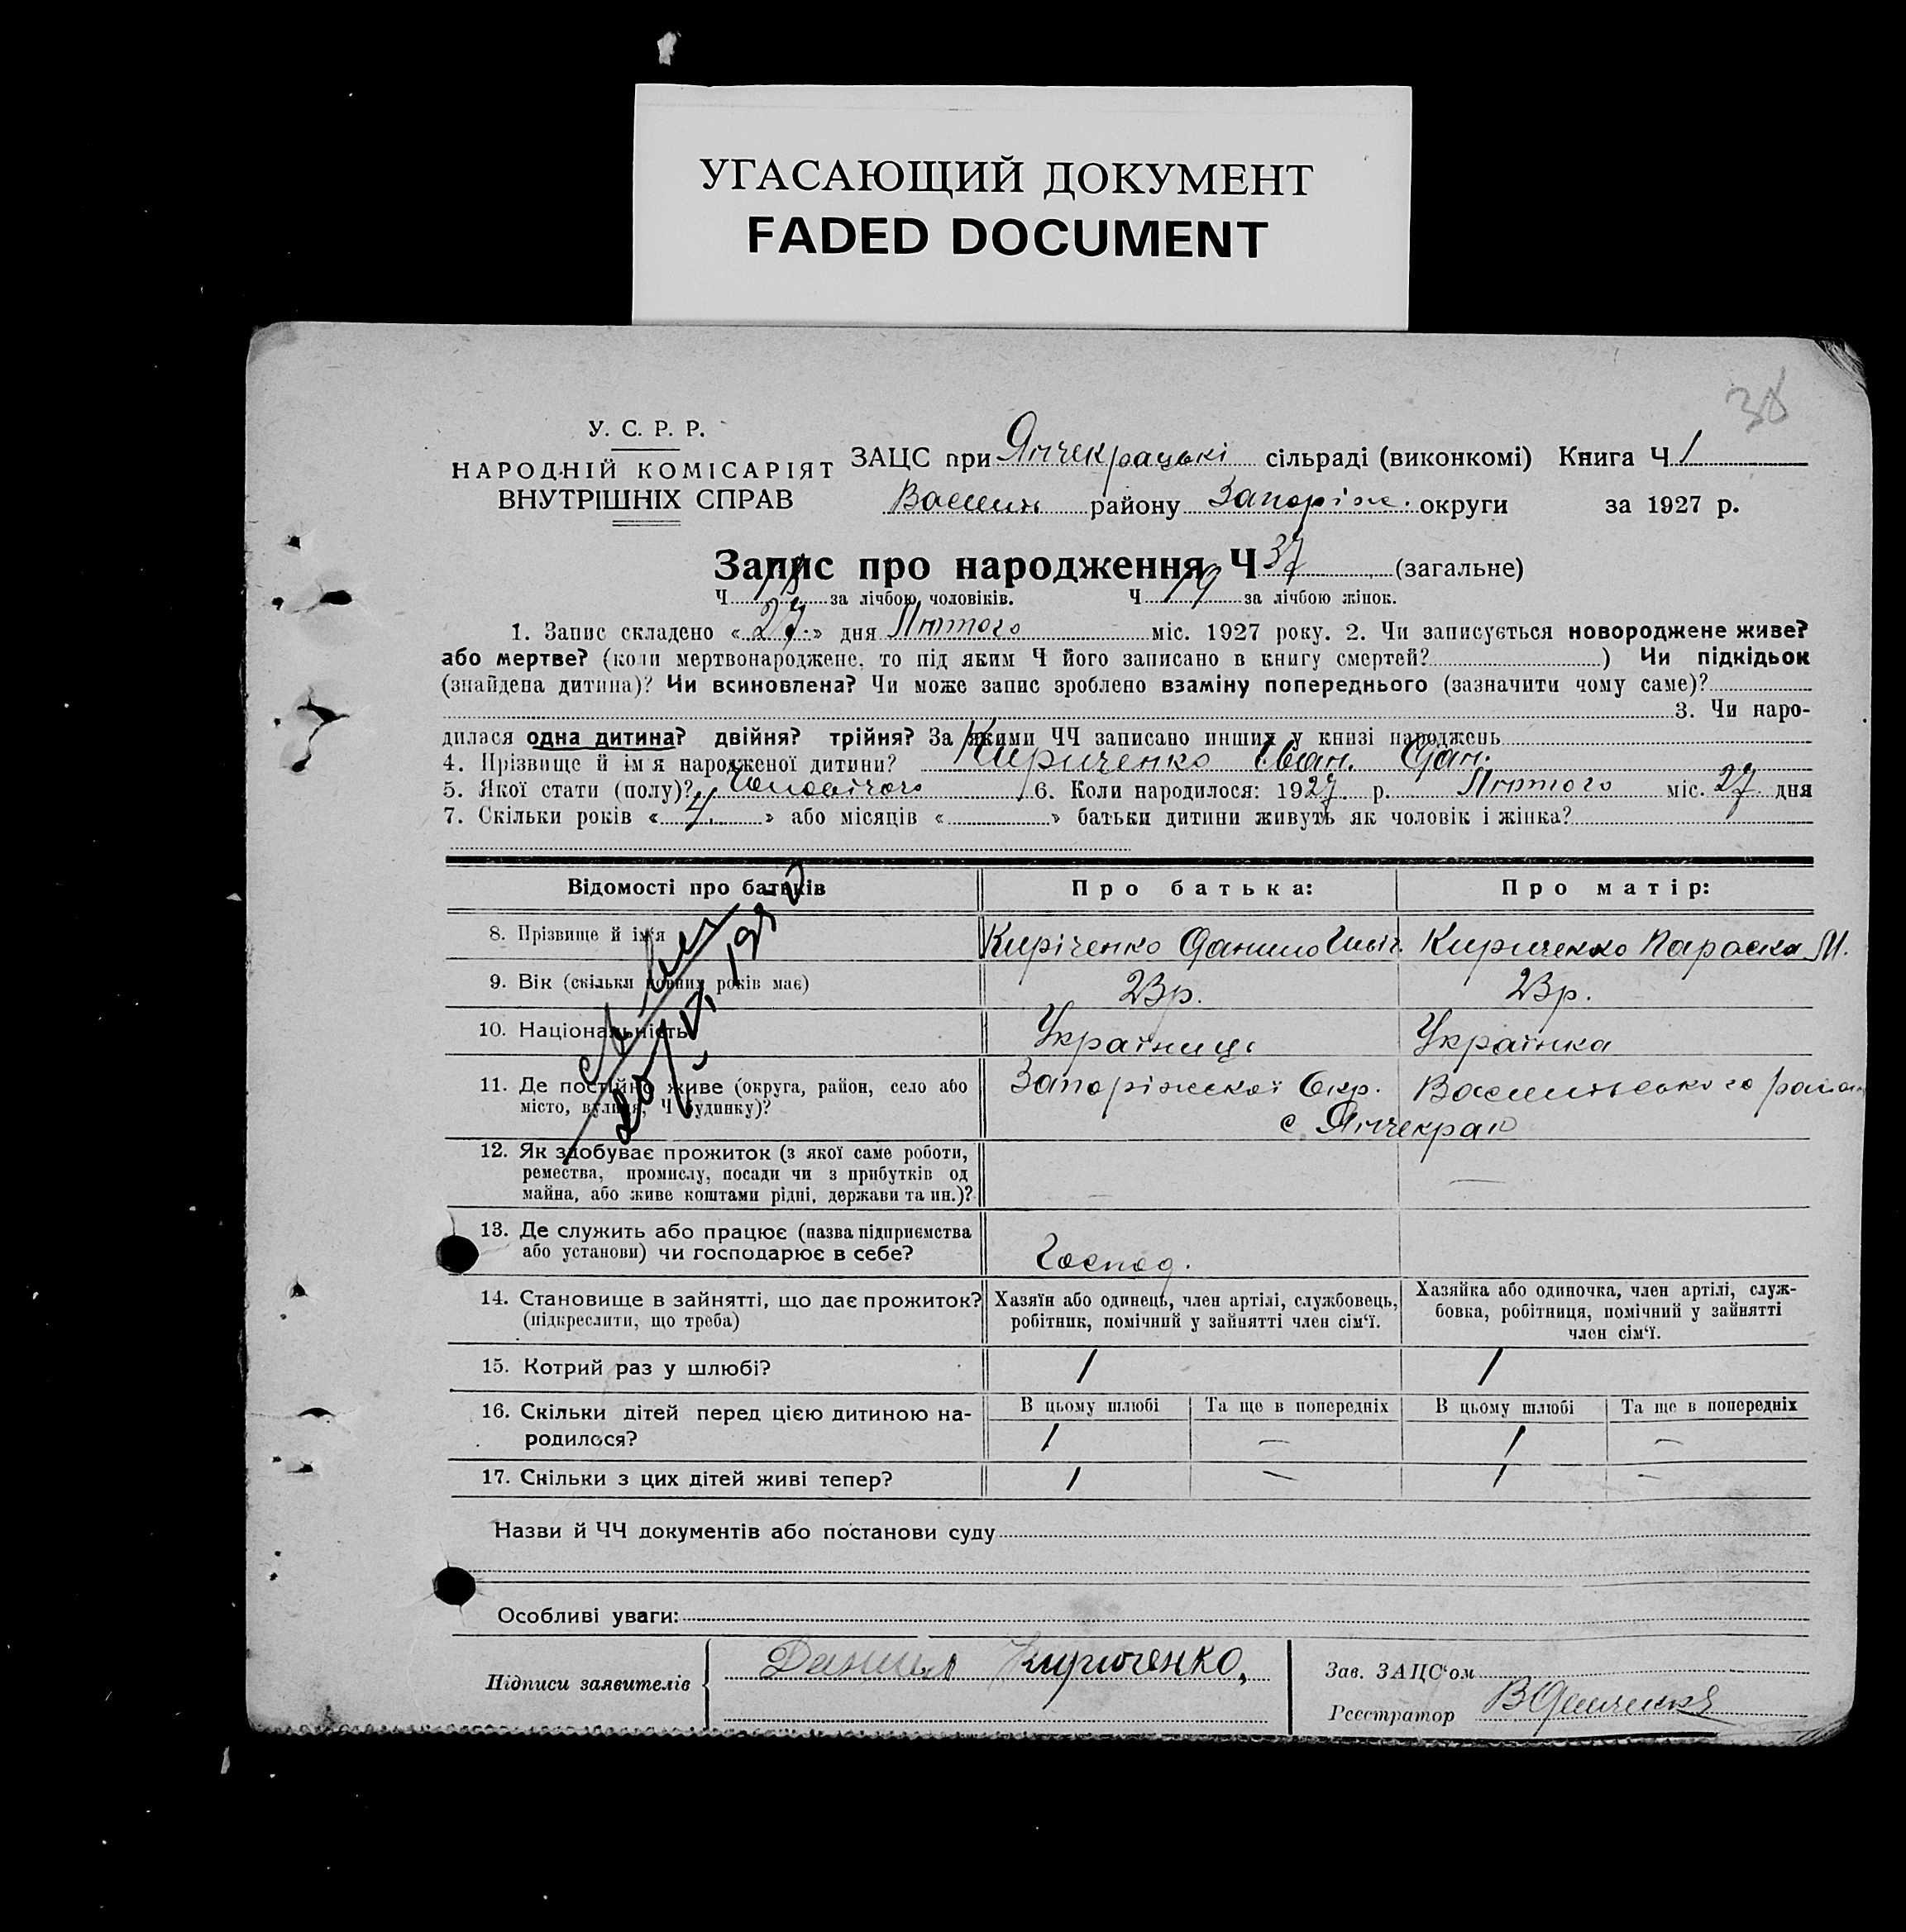 УГАСАЮЩИЙ ДОКУМЕНТ
FADED DOCUMENT
38
У. С. Р. Р.
НАРОДНІЙ КОМІСАРІЯТ
ВНУТРІШНІХ СПРАВ
ЗАЦС при Янчекрацькі сільраді (виконкомі) Книга Ч 1
Васили району Запоріж. округи за 1927 р.
Запис про народження Ч 37 (загальне)
Ч 18 за лічбою чоловіків. Ч 19 за лічбою жінок.
1. Запис складено « 27. » дня Лютого міс. 1927 року. 2. Чи записується новороджене живе?
або мертве? (коли мертвонароджене, то під яким Ч його записано в книгу смертей? ) Чи підкідьок
(знайдена дитина)? Чи всиновлена? Чи може запис зроблено взаміну попереднього (зазначити чому саме)?
3. Чи наро-
дилася одна дитина? двійня? трійня? За якими ЧЧ записано инших у книзі народжень
4. Прізвище й ім'я народженої дитини? Кириченко Іван. Дан.
5. Якої стати (полу)? 6. Коли народилося: 1927 р. Лютого міс. 27 дня
7. Скільки років « 4. » або місяців « » батьки дитини живуть як чоловік і жінка?
Відомості про батьків Про батька: Про матір:
8. Прізвище й ім'я Киріченко Данило Кириченко Параска М.
9. Вік (скільки повних років має) 23р. 23р.
10. Національність Українець Українка
11. Де постійно живе (округа, район, село або Запоріжскої Окр. Васильського район
місто, вулиця, Ч будинку)? с. Янчекрак
12. Як здобуває прожиток (з якої саме роботи,
ремества, промислу, посади чи з прибутків од
майна, або живе коштами рідні, держави та ин.)? — —
13. Де служить або працює (назва підприємства
або установи) чи господарює в себе? Господ.
14. Становище в зайнятті, що дає прожиток?
(підкреслити, що треба)
Хазяїн або одинець, член артілі, службовець,
робітник, помічний у зайнятті член сім'ї.
Хазяйка або одиночка, член артілі, служ-
бовка, робітниця, помічний у зайнятті
член сім'ї.
15. Котрий раз у шлюбі? 1 1
16. Скільки дітей перед цією дитиною на-
родилося?
В цьому шлюбі Та ще в попередніх В цьому шлюбі Та ще в попередніх
1 — 1 —
17. Скільки з цих дітей живі тепер? 1 — 1 -
Назви й ЧЧ документів або постанови суду
Особливі уваги:
Підписи заявителів Данил Кириченко,
Зав. ЗАЦС'ом
Реєстратор